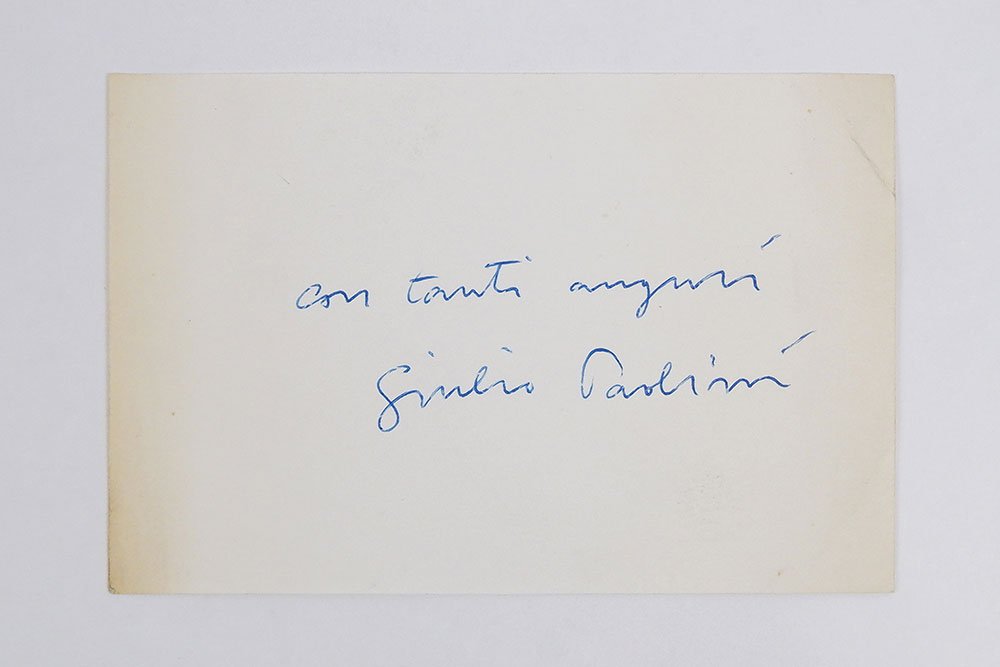 con tanti auguri
Giulio Paolini